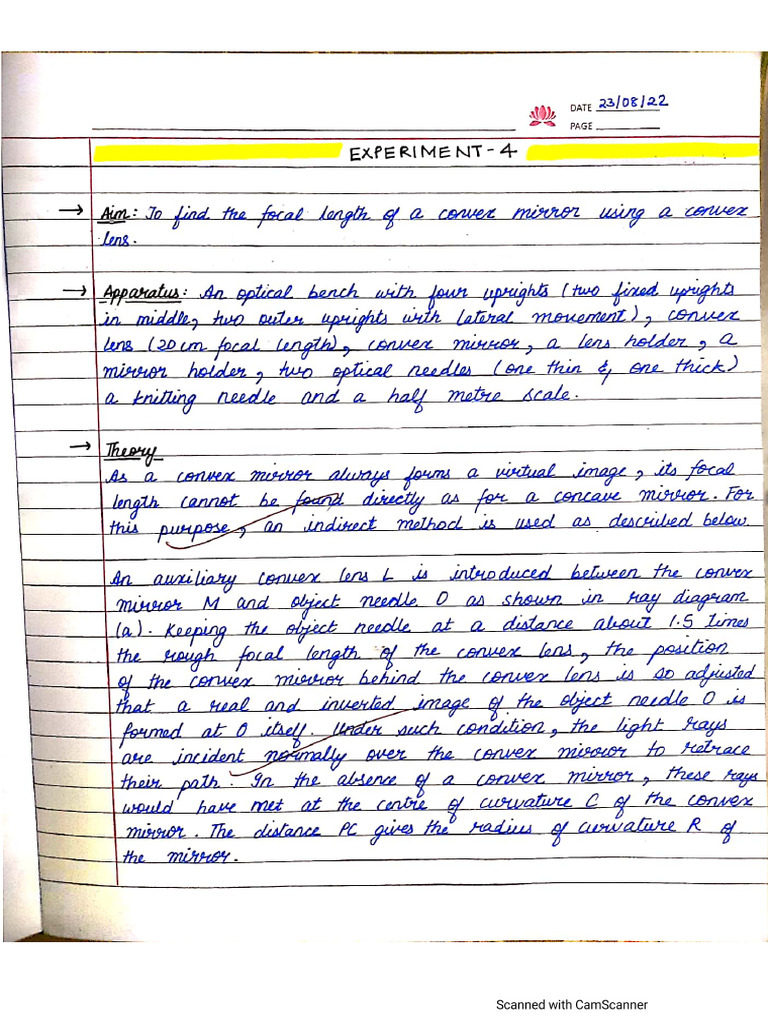 DATE 23/08/22
PAGE
EXPERIMENT-4
→ Aim: To find the focal length of a convex mirror using a convex
lens.
→ Apparatus: An optical bench with four uprights (two fixed uprights
in middle, two outer uprights with lateral movement), convex
lens (20cm focal length), convex mirror, a lens holder, a
mirror holder, two optical needles (one thin & one thick)
a knitting needle and a half metre scale.
→ Theory
As a convex mirror always forms a virtual image, its focal
length cannot be found directly as for a concave mirror. For
this purpose, an indirect method is used as described below.
An auxiliary convex lens L is introduced between the convex
mirror M and object needle O as shown in ray diagram
(a). Keeping the object needle at a distance about 1.5 times
the rough focal length of the convex lens, the position
of the convex mirror behind the convex lens is so adjusted
that a real and inverted image of the object needle O is
formed at O itself. Under such condition, the light rays
are incident normally over the convex mirror to retrace
their path. In the absence of a convex mirror, these rays
would have met at the centre of curvature C of the convex
mirror. The distance PC gives the radius of curvature R of
the mirror.
Scanned with CamScanner